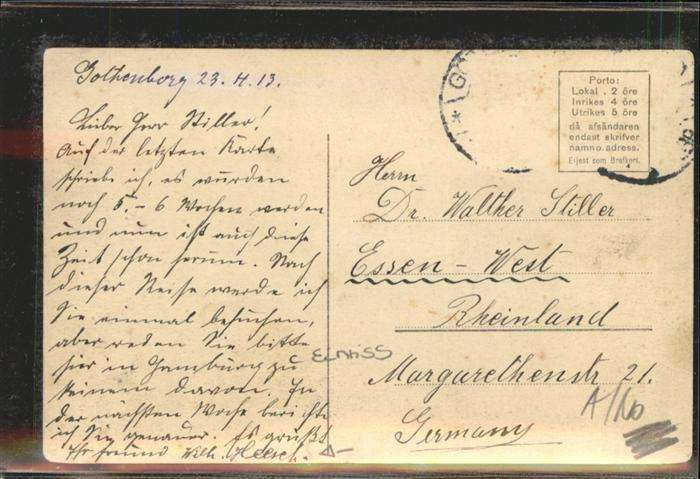 Gothenborg 23. 4. 13.
Lieber Herr Stiller!
Auf der letzten Karte
schrieb ich, es würden
noch 5 - 6 Wochen werden
und nun ist auch diese
Zeit schon herum. Nach
dieser Reise werde ich
Sie einmal besuchen,
aber reden Sie bitte
hier in Hamburg zu
keinem davon. In
der nächsten Woche berichte
ich Sie genauer. Es grüßt
Ihr Freund Wilh.
Porto:
Lokal . 2 öre
Inrikes 4 öre
Utrikes 5 öre
då afsändaren
endast skrifver
namn o. adress.
Eljest som Brefkort.
Herrn
Dr. Walther Stiller
Essen - West
Rheinland
Margarethenstr 21.
Germany